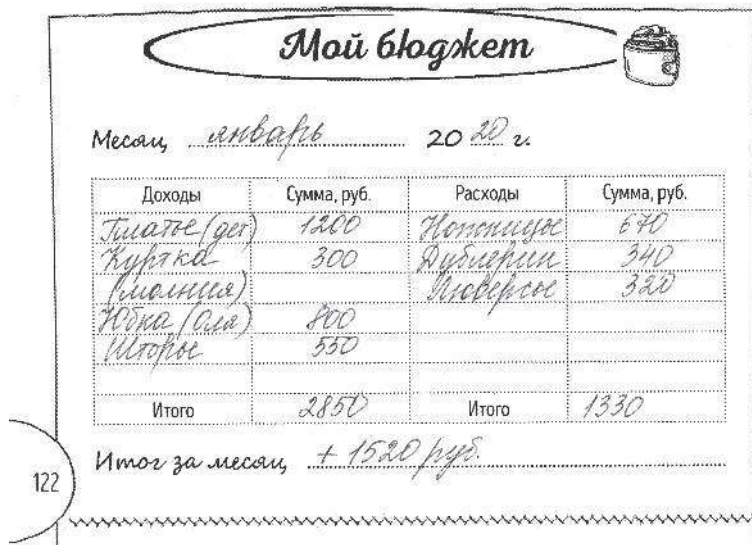 Мой бюджет
Месяц январь 2020 г.
Доходы Сумма, руб. Расходы Сумма, руб.
Платье (дет) 1200 Ножницы 670
Куртка 300 Дублерин 340
(молния) Люверсы 320
Юбка (Оля) 800
Шторы 550
Итого 2850 Итого 1330
Итог за месяц + 1520 руб.
122